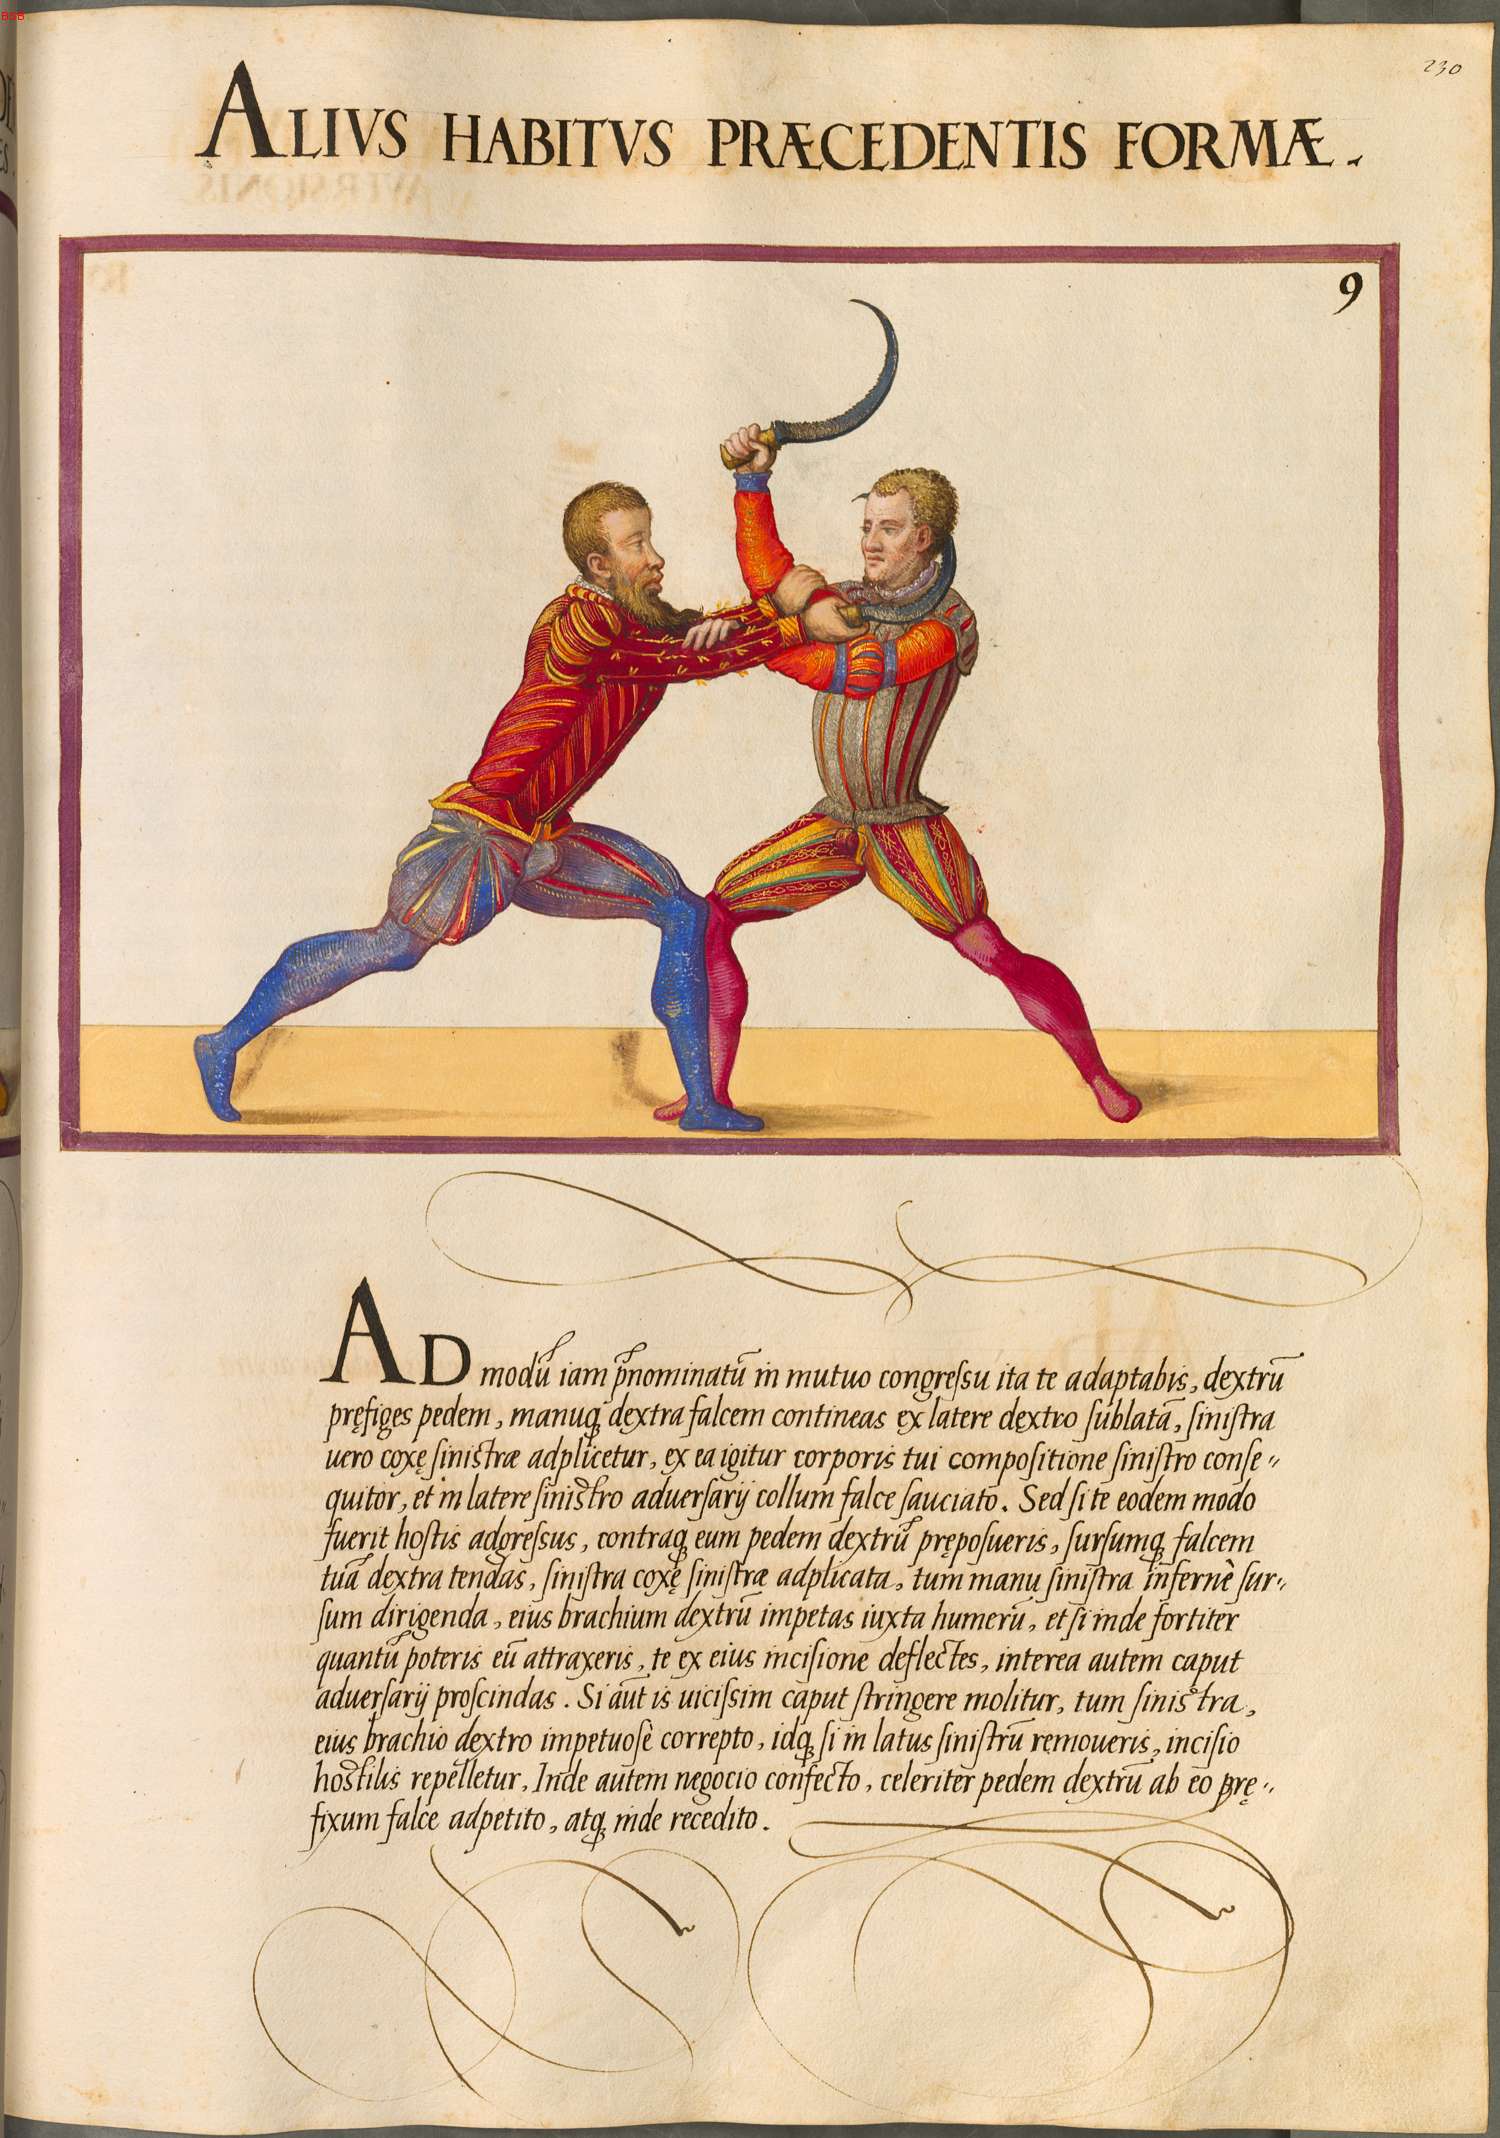 BSB
230
ALIVS HABITVS PRÆCEDENTIS FORMÆ.
9
AD modũ iam p̃nominatũ in mutuo congreſsu ita te adaptabis, dextrũ
pręfiges pedem, manuq̨ dextra falcem contineas ex latere dextro ſublatã, ſiniſtra
uero coxę ſiniſtræ adplicetur, ex ea igitur corporis tui compoſitione ſiniſtro conſe〃
quitor, et in latere ſiniſtro aduerſarij collum falce ſauciato. Sed ſi te eodem modo
fuerit hoſtis adgreſsus, contraq̨ eum pedem dextrũ prępoſueris, ſurſumq̨ falcem
tuã dextra tendas, ſiniſtra coxę ſiniſtræ adplicata, tum manu ſiniſtra infernè ſur〃
ſum dirigenda, eius brachium dextrũ impetas iuxta humerũ, et ſi inde fortiter
quantũ poteris eũ attraxeris, te ex eius inciſione deflectes, interea autem caput
aduerſarij proſcindas. Si aũt is uiciſsim caput ſtringere molitur, tum ſiniſtra,
eius brachio dextro impetuoſè correpto, idq̨ ſi in latus ſiniſtrũ remoueris, inciſio
hoſtilis repelletur, Inde autem negocio confecto, celeriter pedem dextrũ ab eo prę〃
fixum falce adpetito, atq̨ inde recedito.